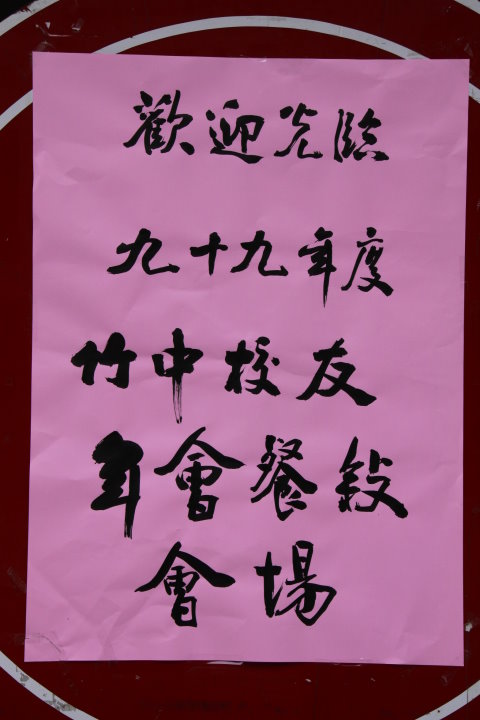 歡迎光臨
九十九年度
竹中校友
年會餐敍
會場